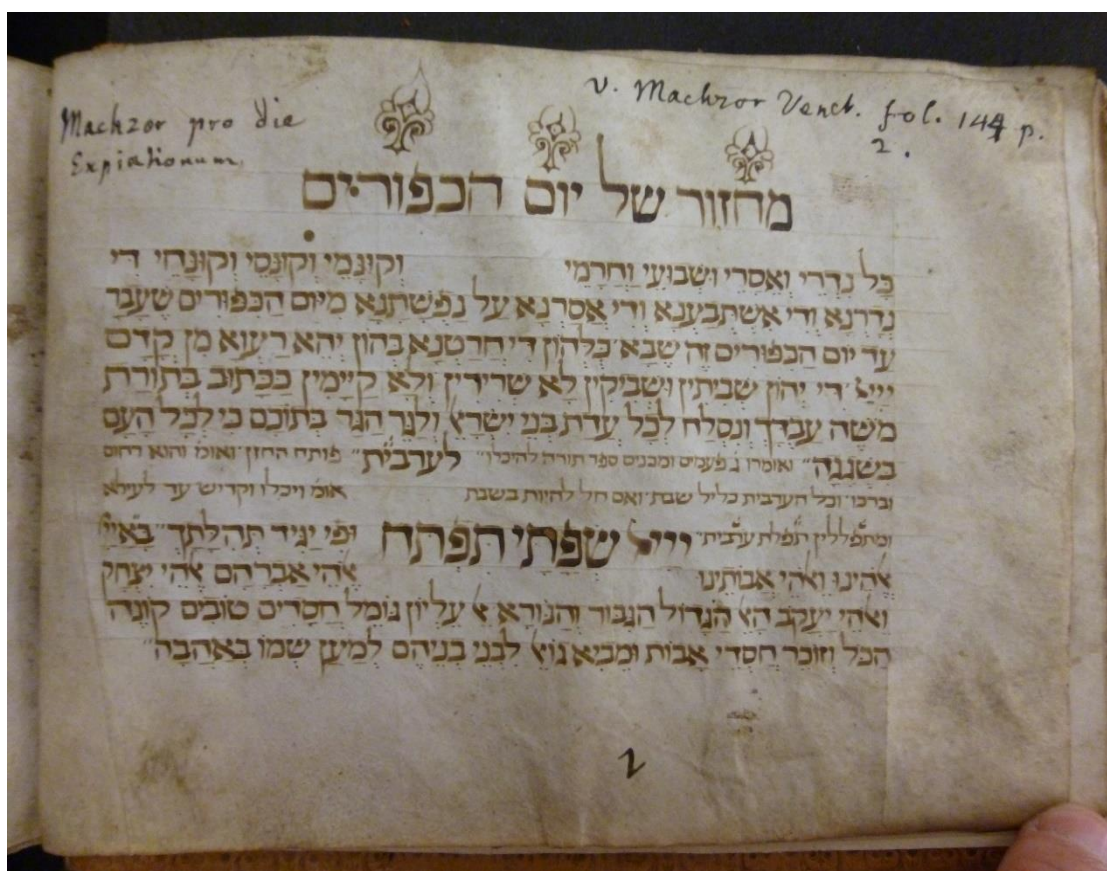 Machzor pro die
Expiationum.
v. Machzor Venet. fol. 144 p.
2.
מחזור של יום הכפורים
כָּל נִדְרֵי וֶאֱסָרֵי וּשְׁבוּעֵי וַחֲרָמֵי וְקוּנָּמֵי וְקוּנָּסֵי וְקוּנָּחֵי דִּי
נְדַרְנָא וְדִי אִשְׁתְּבַעְנָא וְדִי אֲסַרְנָא עַל נַפְשָׁתָנָא מִיּוֹם הַכִּפּוּרִים שֶׁעָבַר
עַד יוֹם הַכִּפּוּרִים זֶה שֶׁבָּא כֻּלְּהוֹן דִּי חֲרַטְנָא בְהוֹן יְהֵא רַעֲוָא מִן קֳדָם
יְיָ דִּי יְהוֹן שְׁבִיתִין וּשְׁבִיקִין לָא שְׁרִירִין וְלָא קַיָּימִין כַּכָּתוּב בְּתוֹרַת
מֹשֶׁה עַבְדָּךְ וְנִסְלַח לְכָל עֲדַת בְּנֵי יִשְׂרָאֵל וְלַגֵּר הַגָּר בְּתוֹכָם כִּי לְכָל הָעָם
בִּשְׁגָגָה״ ואומרו ג פעמים ומכניס ספר תורה להיכלו״ לערבית״ פותח החזן ואומ׳ והוא רחום
וברכו׳ וכל הערבית כליל שבת׳ ואם חל להיות בשבת אומ׳ ויכלו וקדיש עד לעילא
ומתפללין תפלת ערבית׳ יְיָ שְׂפָתַי תִּפְתָּח וּפִי יַגִּיד תְּהִלָּתֶךָ״ בָּאַ״יְ
אֱלֹהֵינוּ וֵאלֹהֵי אֲבוֹתֵינוּ אֱלֹהֵי אַבְרָהָם אֱלֹהֵי יִצְחָק
וֵאלֹהֵי יַעֲקֹב הָאֵל הַגָּדוֹל הַגִּבּוֹר וְהַנּוֹרָא אֵל עֶלְיוֹן גּוֹמֵל חֲסָדִים טוֹבִים קוֹנֵה
הַכֹּל וְזוֹכֵר חַסְדֵי אָבוֹת וּמֵבִיא גוֹאֵל לִבְנֵי בְנֵיהֶם לְמַעַן שְׁמוֹ בְּאַהֲבָה״
2